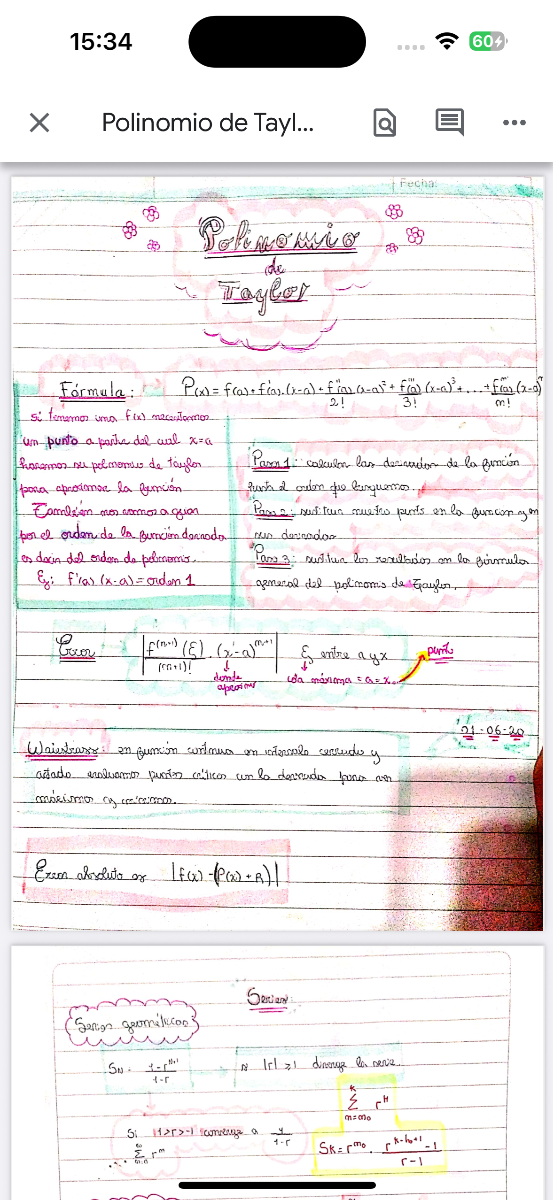 15:34
60
Polinomio de Tayl...
Fecha:
Polinomio
de
Taylor
Fórmula: P(x) = f(a) + f'(a).(x-a) + f''(a) (x-a)² + f'''(a) (x-a)³ + ... + fⁿ(a) (x-a)ⁿ
2! 3! n!
si tenemos una f(x) necesitamos
un punto a partir del cual x=a
haremos su polinomio de taylor
para aproximar la función
También nos vamos a guiar
por el orden de la función derivada
es decir del orden de polinomio.
Ej: f'(a) (x-a) = orden 1
Paso 1: calcular las derivadas de la función
hasta el orden que tengamos.
Paso 2: sustituir nuestro punto en la función y en
sus derivadas
Paso 3: sustituir los resultados en la fórmula
general del polinomio de Taylor.
Error |f⁽ⁿ⁺¹⁾(ξ) . (x-a)ⁿ⁺¹| ξ entre a y x punto
(n+1)!
donde
aproximar
cota máxima = a = x
21-06-20
Waistrass: en función continua en intervalo cerrado y
acotado evaluamos puntos críticos con la derivada para ver
máximos y mínimos.
Error absoluto es |f(x) - (P(x) + R)|
Series
Series geométricas
Sn = 1-rⁿ⁺¹
1-r
si |r| ≥ 1 diverge la serie
k
Σ rⁿ
n=n₀
Si 1>r>-1 converge a
1-r
Sk = r^n₀ . r^k-n₀+1 - 1
r-1